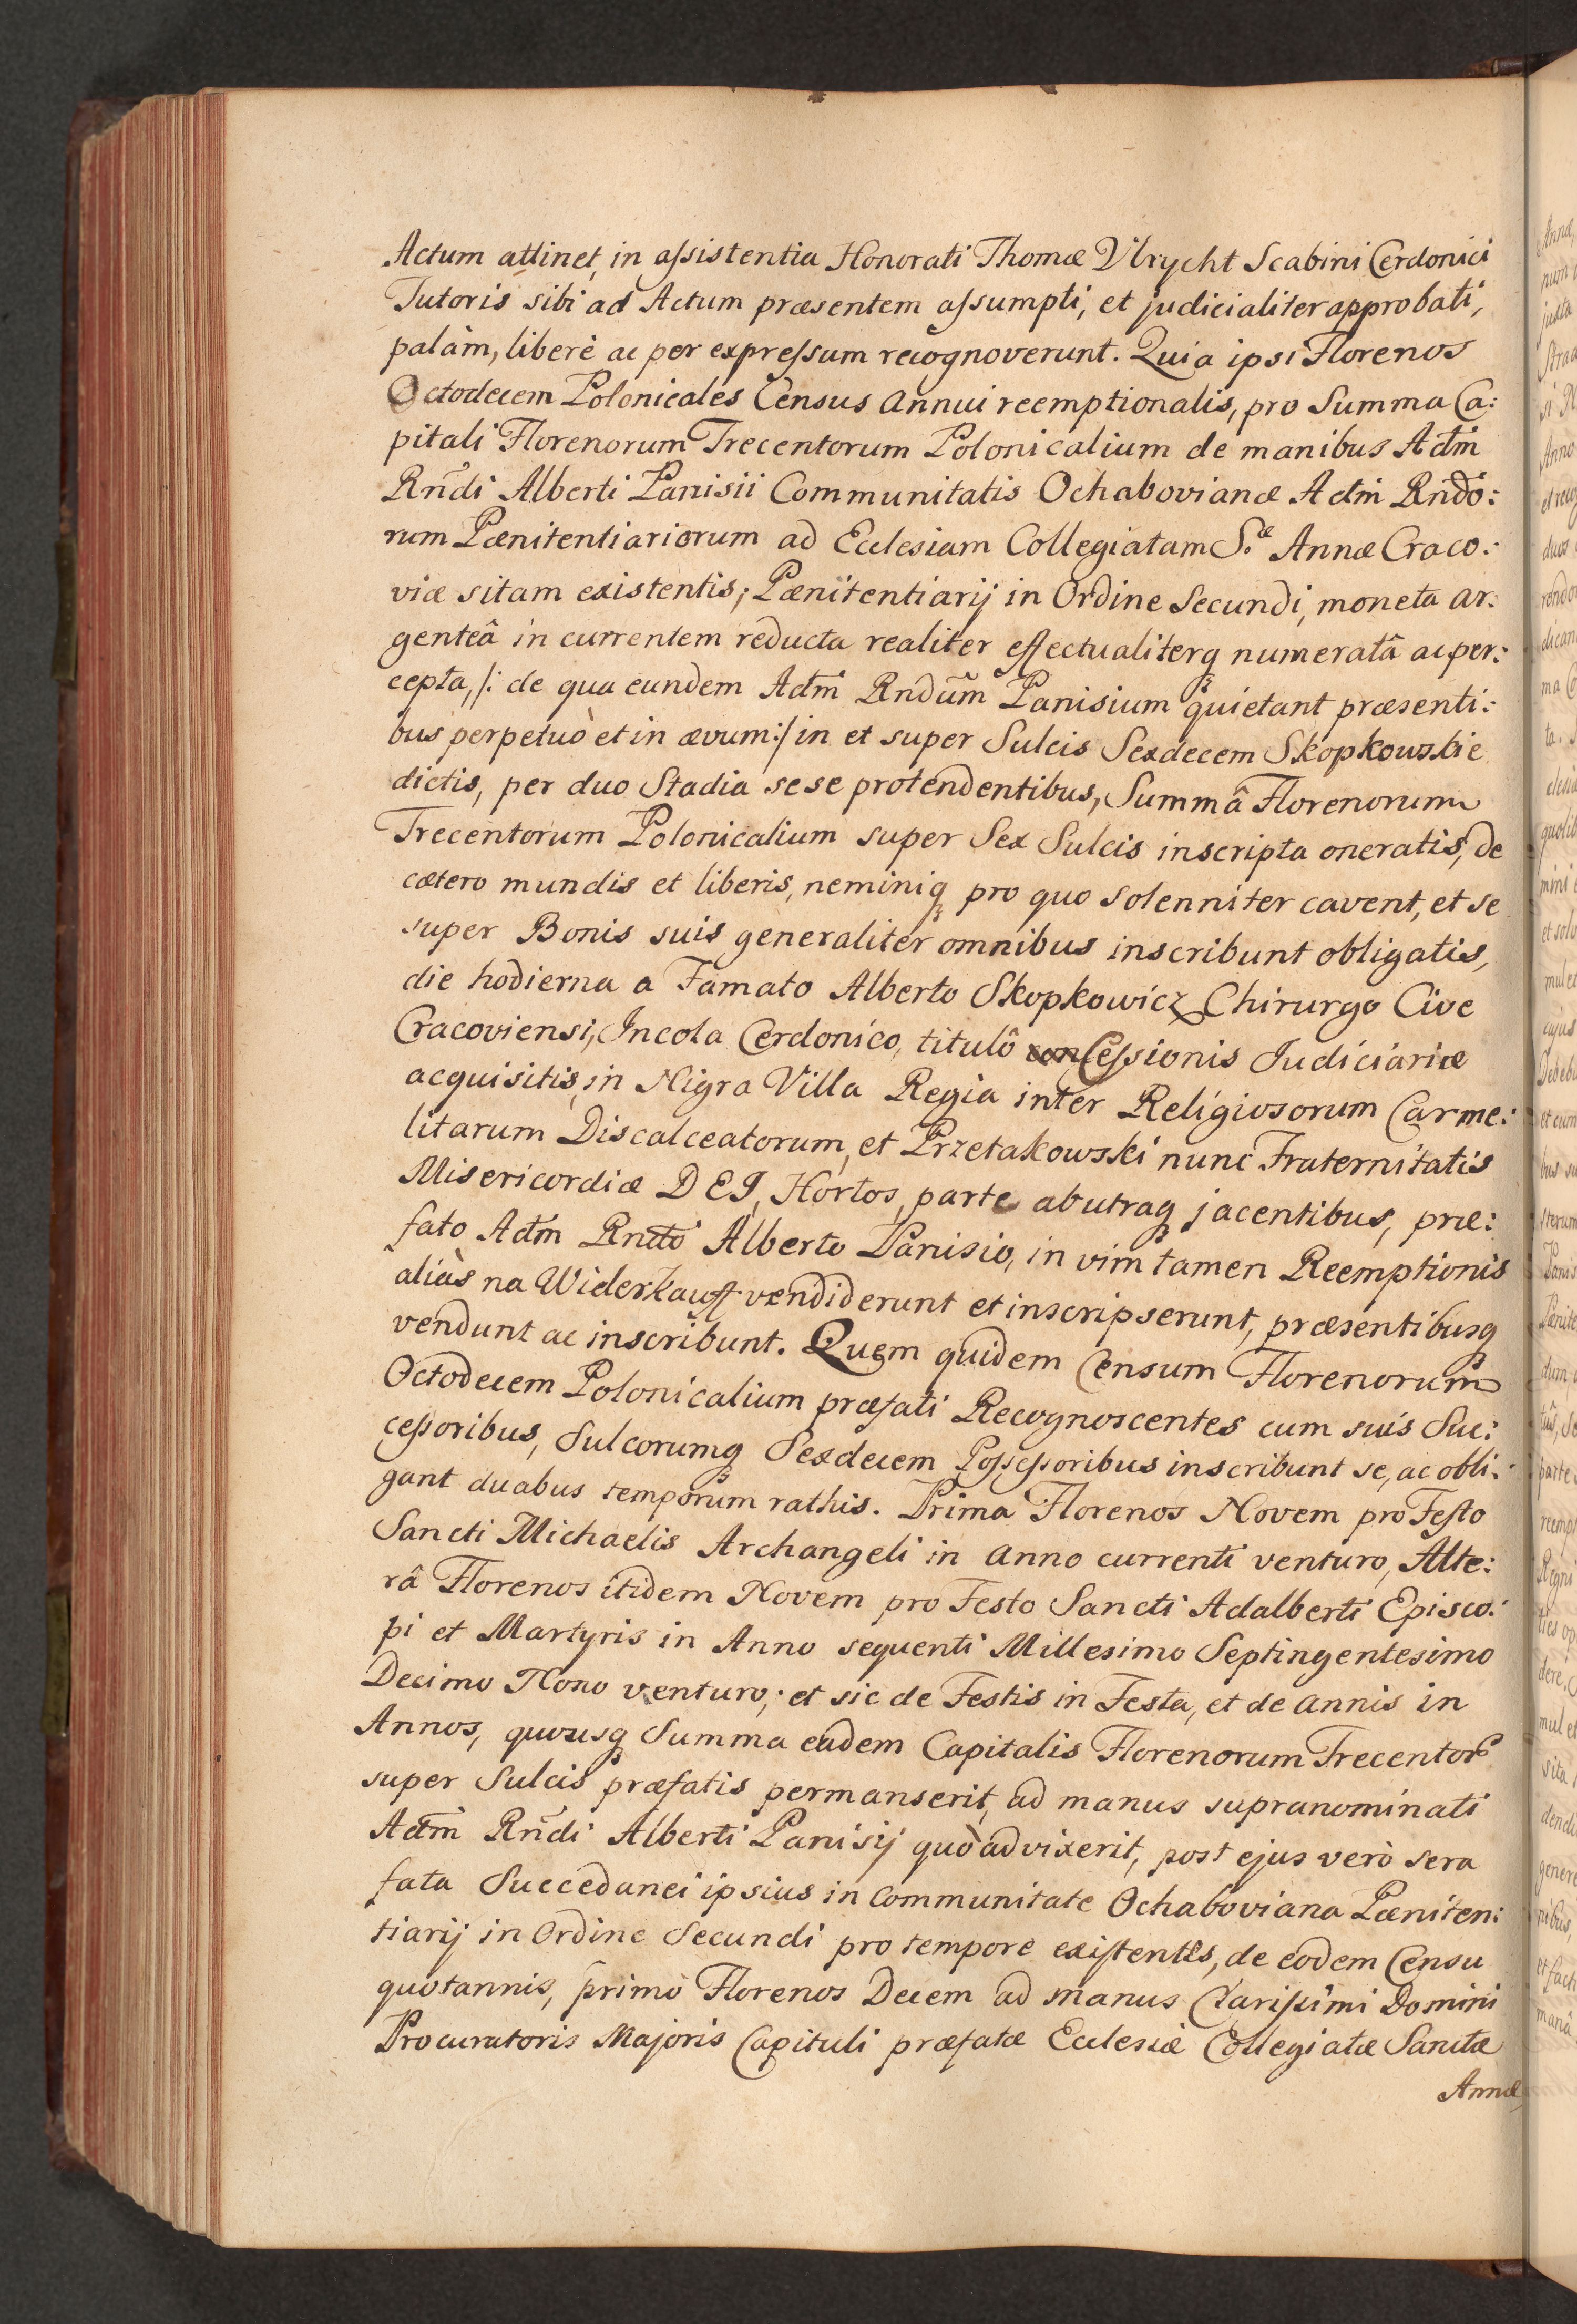 Actum attinet, in assistentia Honorati Thomæ Ulrycht Scabini Cerdonici
Tutoris sibi ad Actum præsentem assumpti, et judicialiter approbati,
palàm, liberè ac per expressum recognoverunt. Quia ipsi Florenos
Octodecem Polonicales Census Annui reemptionalis, pro Summa Ca:
pitali Florenorum Trecentorum Polonicalium de manibus Adm̄
Rn̄di Alberti Panisii Communitatis Ochabovianæ Adm̄ Rn̄do:
rum Pænitentiariorum ad Ecclesiam Collegiatam S.æ Annæ Craco:
viæ sitam existentis; Pænitentiarij in Ordine Secundi, moneta ar:
genteâ in currentem reducta realiter effectualiterq numeratâ ac per:
cepta, /: de qua eundem Adm̄ Rn̄dūm Panisium quietant præsenti:
bus perpetuò et in ævum :/ in et super Sulcis Sexdecem Skopkowskie
dictis, per duo Stadia sese protendentibus, Summâ Florenorum
Trecentorum Polonicalium super Sex Sulcis inscripta oneratis, de
cætero mundis et liberis, neminiq pro quo solenniter cavent, et se
super Bonis suis generaliter omnibus inscribunt obligatis,
die hodierna a Famato Alberto Skopkowicz Chirurgo Cive
Cracoviensi, Incola Cerdonico, titulô con Cessionis Judiciariæ
acquisitis, in Nigra Villa Regia inter Religiosorum Carme:
litarum Discalceatorum, et Przetakowski nunc Fraternitatis
Misericordiæ DEI, Hortos, parte ab utraq jacentibus, præ:
fato Adm̄ Rndō Alberto Panisio, in vim tamen Reemptionis
aliàs na Widerkauff vendiderunt et inscripserunt, præsentibusq
vendunt ac inscribunt. Quem quidem Censum Florenorum
Octodecem Polonicalium præfati Recognoscentes cum suis Suc:
cessoribus, Sulcorumq Sexdecem Possessoribus inscribunt se, ac obli:
gant duabus temporum rathis. Prima Florenos Novem pro Festo
Sancti Michaelis Archangeli in Anno currenti venturo, Alte:
râ Florenos itidem Novem pro Festo Sancti Adalberti Episco:
pi et Martyris in Anno sequenti Millesimo Septingentesimo
Decimo Nono venturo; et sic de Festis in Festa, et de Annis in
Annos, quousq Summa eadem Capitalis Florenorum Trecentor
super Sulcis præfatis permanserit, ad manus supranominati
Adm̄ Rn̄di Alberti Panisij quòad vixerit, post ejus verò sera
fata Succedanei ipsius in Communitate Ochaboviana Pæniten:
tiarij in Ordine Secundi pro tempore existentis, de eodem Censu
quotannis, primò Florenos Decem ad manus Clarissimi Domini
Procuratoris Majoris Capituli præfatæ Ecclesiæ Collegiatæ Sanctæ
Annæ